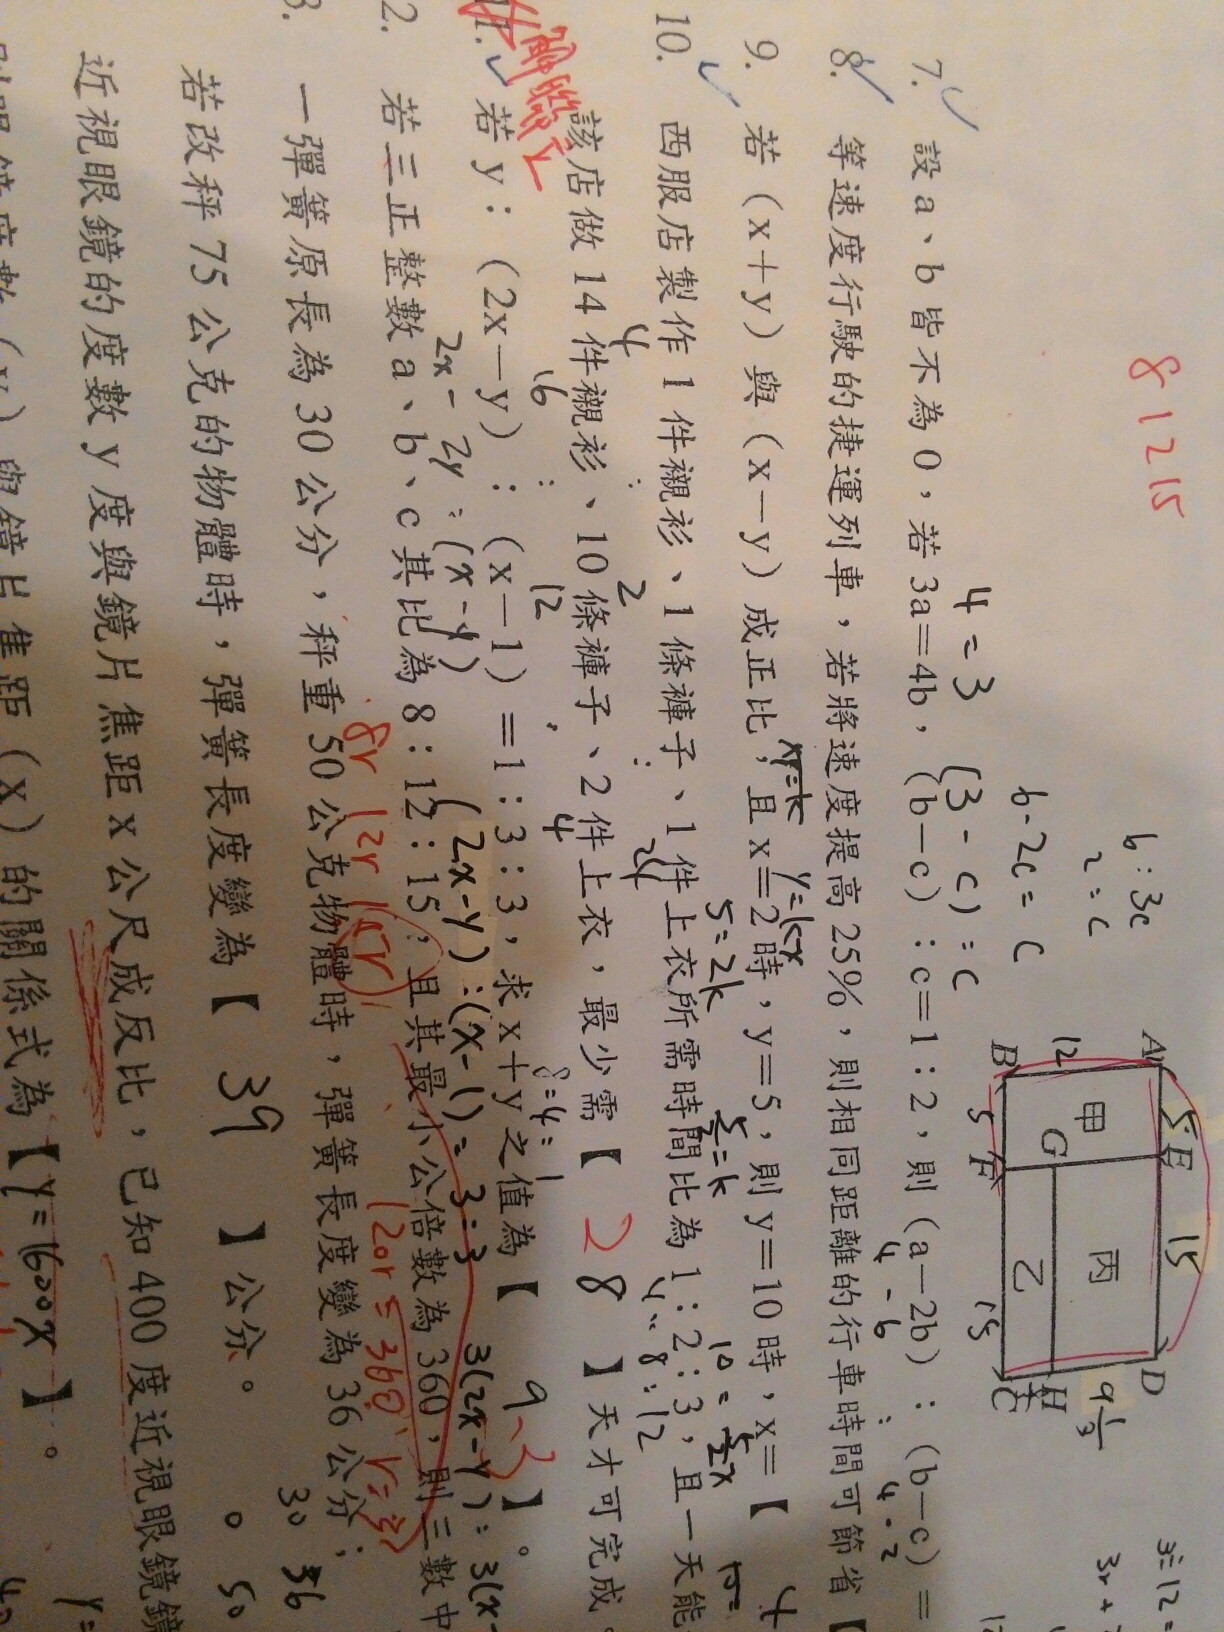 8 12 15
b:3c
2=c
b-2c=c
A
5
E
15
D
12
甲
丙
9 1/3
G
H
乙
B
5
F
15
C
4=3
(3-c)=c
7. 設a、b皆不為0，若3a=4b，(b-c)：c=1：2，則(a-2b)：(b-c)=
4-6
4-2
8. 等速度行駛的捷運列車，若將速度提高25%，則相同距離的行車時間可節省【
9. 若(x+y)與(x-y)成正比，且x=2時，y=5，則y=10時，x=【 4
y=kx
5=2k
5/2=k
10=5/2x
10. 西服店製作1件襯衫、1條褲子、1件上衣所需時間比為1：2：3，且一天能
4
2
4:8:12
該店做14件襯衫、10條褲子、2件上衣，最少需【 28 】天才可完成。
16
12
4
8=4=1
1. 若y：(2x-y)：(x-1)=1：3：3，求x+y之值為【 9 】。
2x-2y:(x-y)
(2x-y):(x-1)=3:3
3(2x-y):3(x-
2. 若三正整數a、b、c其比為8：12：15，且其最小公倍數為360，則三數中
8r 12r 15r
120r=360 r=3
3. 一彈簧原長為30公分，秤重50公克物體時，彈簧長度變為36公分；
30 36
0 50
若改秤75公克的物體時，彈簧長度變為【 39 】公分。
近視眼鏡的度數y度與鏡片焦距x公尺成反比，已知400度近視眼鏡鏡
(x)的關係式為【y=1600x】。